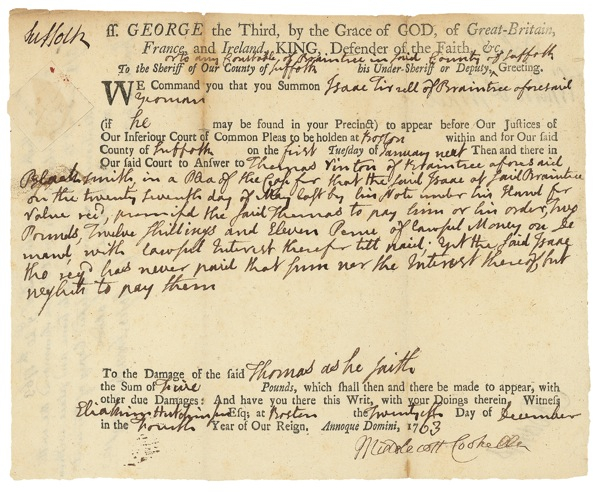 Suffolk
ſſ. GEORGE the Third, by the Grace of GOD, of Great-Britain,
France, and Ireland, KING, Defender of the Faith, &c.
or to any Constable of Braintree in said County of Suffolk
To the Sheriff of Our County of Suffolk his Under-Sheriff or Deputy, Greeting.
WE Command you that you Summon Isaac Tirrell of Braintree aforesaid
Yeoman
(if he may be found in your Precinct) to appear before Our Juſtices of
Our Inferiour Court of Common Pleas to be holden at Boston within and for Our ſaid
County of Suffolk on the first Tuesday of January next Then and there in
Our ſaid Court to Anſwer to Thomas Vinton of Braintree aforesaid
Blacksmith, in a Plea of the Case for that the said Isaac at said Braintree
on the twenty seventh day of May last by his Note under his Hand for
Value recd, promised the said Thomas to pay him or his order, two
Pounds, Twelve Shillings and Eleven Pence of lawful Money on De
mand, with lawful Interest therefor till paid. Yet the said Isaac
tho reqd has never paid that sum nor the Interest thereof but
neglects to pay them
To the Damage of the ſaid Thomas as he saith
the Sum of five Pounds, which ſhall then and there be made to appear, with
other due Damages: And have you there this Writ, with your Doings therein. Witneſs
Eliakim Hutchinson Eſq; at Boston the Twentieth Day of December
in the Fourth Year of Our Reign, Annoque Domini, 1763
Middlecott Cooke Cler